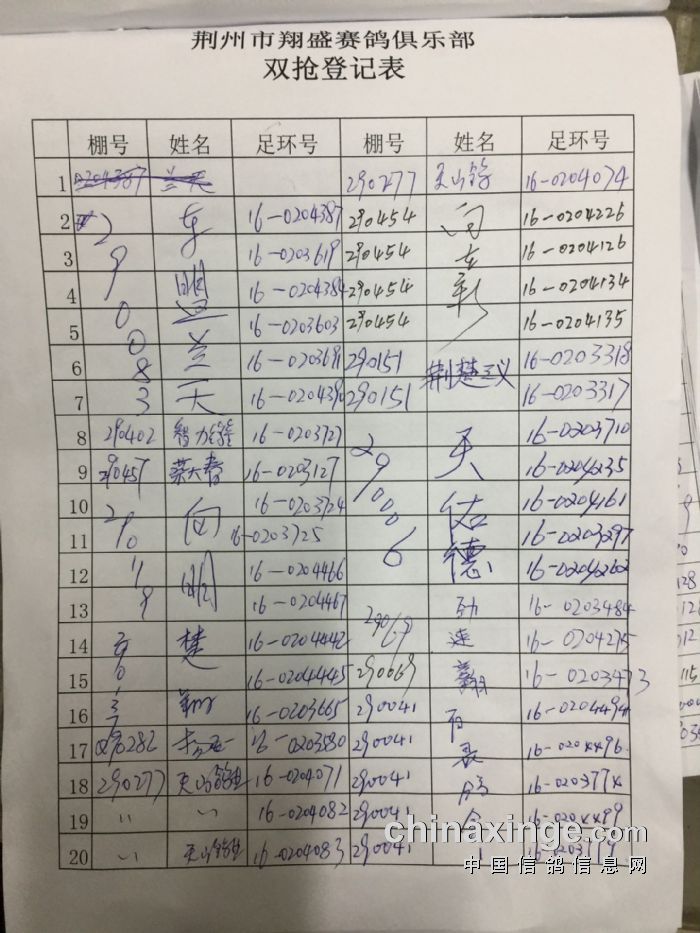 荆州市翔盛赛鸽俱乐部
双抢登记表
棚号 姓名 足环号 棚号 姓名 足环号
1 0204387 兰天 290277 天山鸽 16-0204074
2 16-0204387 290454 16-0204226
3 16-0203619 290454 16-0204126
4 16-0204384 290454 16-0204134
5 16-0203603 290454 16-0204135
6 16-0203691 290151 荆楚三义 16-0203318
7 天 16-0204390 290151 16-0203317
8 290402 智力鸽 16-0203727 天 16-0203710
9 290457 16-0203127 16-0204235
10 向 16-0203724 佑 16-0204161
11 16-0203725 16-0203297
12 明 16-0204466 德 16-0204262
13 16-0204467 劲 16-0203484
14 楚 16-0204442 29069 速 16-0204275
15 16-0204445 290069 翔 16-0203473
16 翔 16-0203665 290041 16-0204494
17 090282 16-0203580 290041 16-0204496
18 290277 天山鸽业 16-0204071 290041 16-0203774
19 16-0204082 290041 16-0204499
20 天山鸽业 16-0204083 290041
chinaxinge.com
中国信鸽信息网